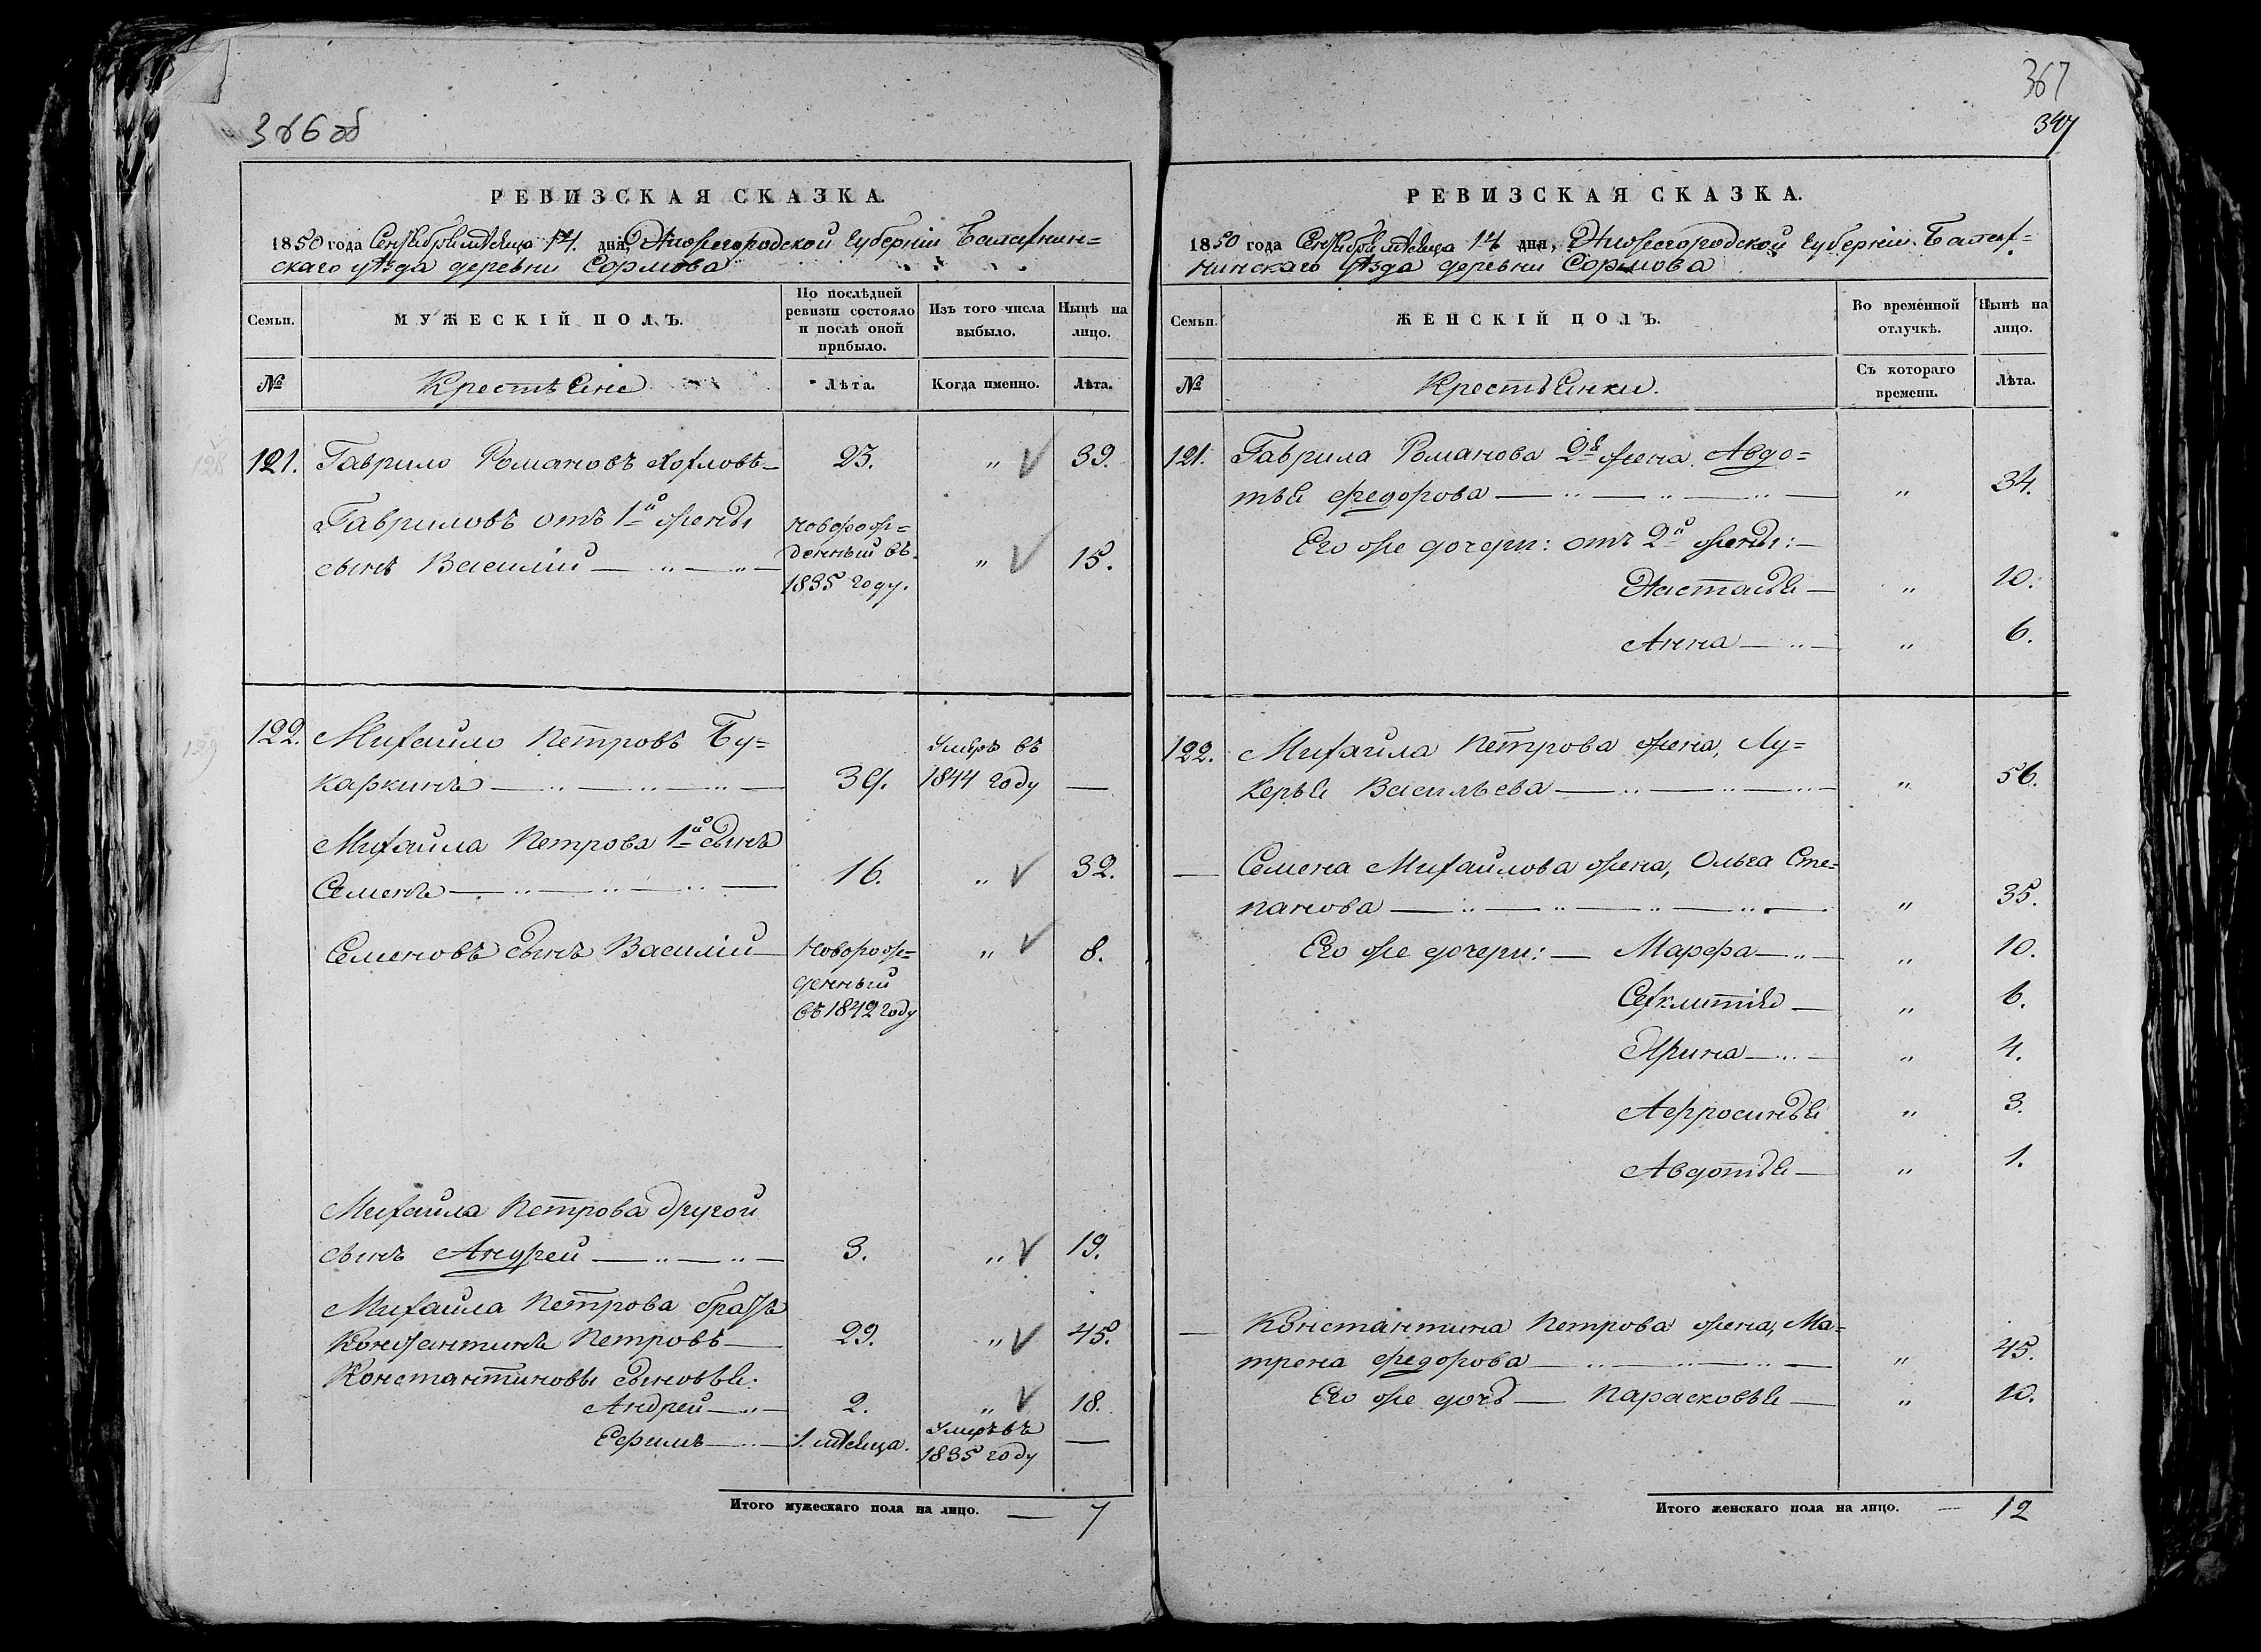 366 об
РЕВИЗСКАЯ СКАЗКА.
1850 года Сентября мѣсяца 14. дня, Нижегородской Губерніи Балахнин=
скаго уѣзда деревни Сормова
Семьи.
МУЖЕСКІЙ ПОЛЪ.
По послѣдней ревизіи состояло и послѣ оной прибыло.
Изъ того числа выбыло.
Нынѣ на лицо.
№
Крестьяне
Лѣта.
Когда именно.
Лѣта.
121. Гаврило Романовъ Хохловъ 23. " 39.
Гавриловъ отъ 1й жены
сынъ Василій
новорож=
денный въ
1835 году.
" 15.
122. Михайло Петровъ Бу=
каркинъ 39.
Умеръ въ
1844 году —
Михайла Петрова 1й сынъ
Семенъ 16. " 32.
Семеновъ сынъ Василій
Новорож=
денный
въ 1842 году
" 8.
Михайла Петрова другой
сынъ Андрей 3. " 19.
Михайла Петрова братъ
Константинъ Петровъ 29. " 45.
Константиновы сыновья:
Андрей 2. " 18.
Ефимъ 1. мѣсяца.
Умеръ въ
1835 году —
Итого мужескаго пола на лицо. — 7
367
347
РЕВИЗСКАЯ СКАЗКА.
1850 года Сентября мѣсяца 14 дня, Нижегородской Губерніи Балах=
нинскаго уѣзда деревни Сормова
Семьи.
ЖЕНСКІЙ ПОЛЪ.
Во временной отлучкѣ.
Нынѣ на лицо.
№
Крестьянки.
Съ котораго времени.
Лѣта.
121. Гаврила Романова 2я жена Авдо=
тья Федорова " 34.
Его же дочери: отъ 2й жены:
Настасья " 10.
Анна " 6.
122. Михайла Петрова жена, Лу=
керья Васильева " 56.
— Семена Михайлова жена, Ольга Сте=
панова " 35.
Его же дочери: — Марфа " 10.
Секлитія " 6.
Ирина " 4.
Афросинья " 3.
Авдотья " 1.
— Константина Петрова жена, Ма=
трена Федорова " 45.
Его же дочь — Парасковья " 10.
Итого женскаго пола на лицо. — 12